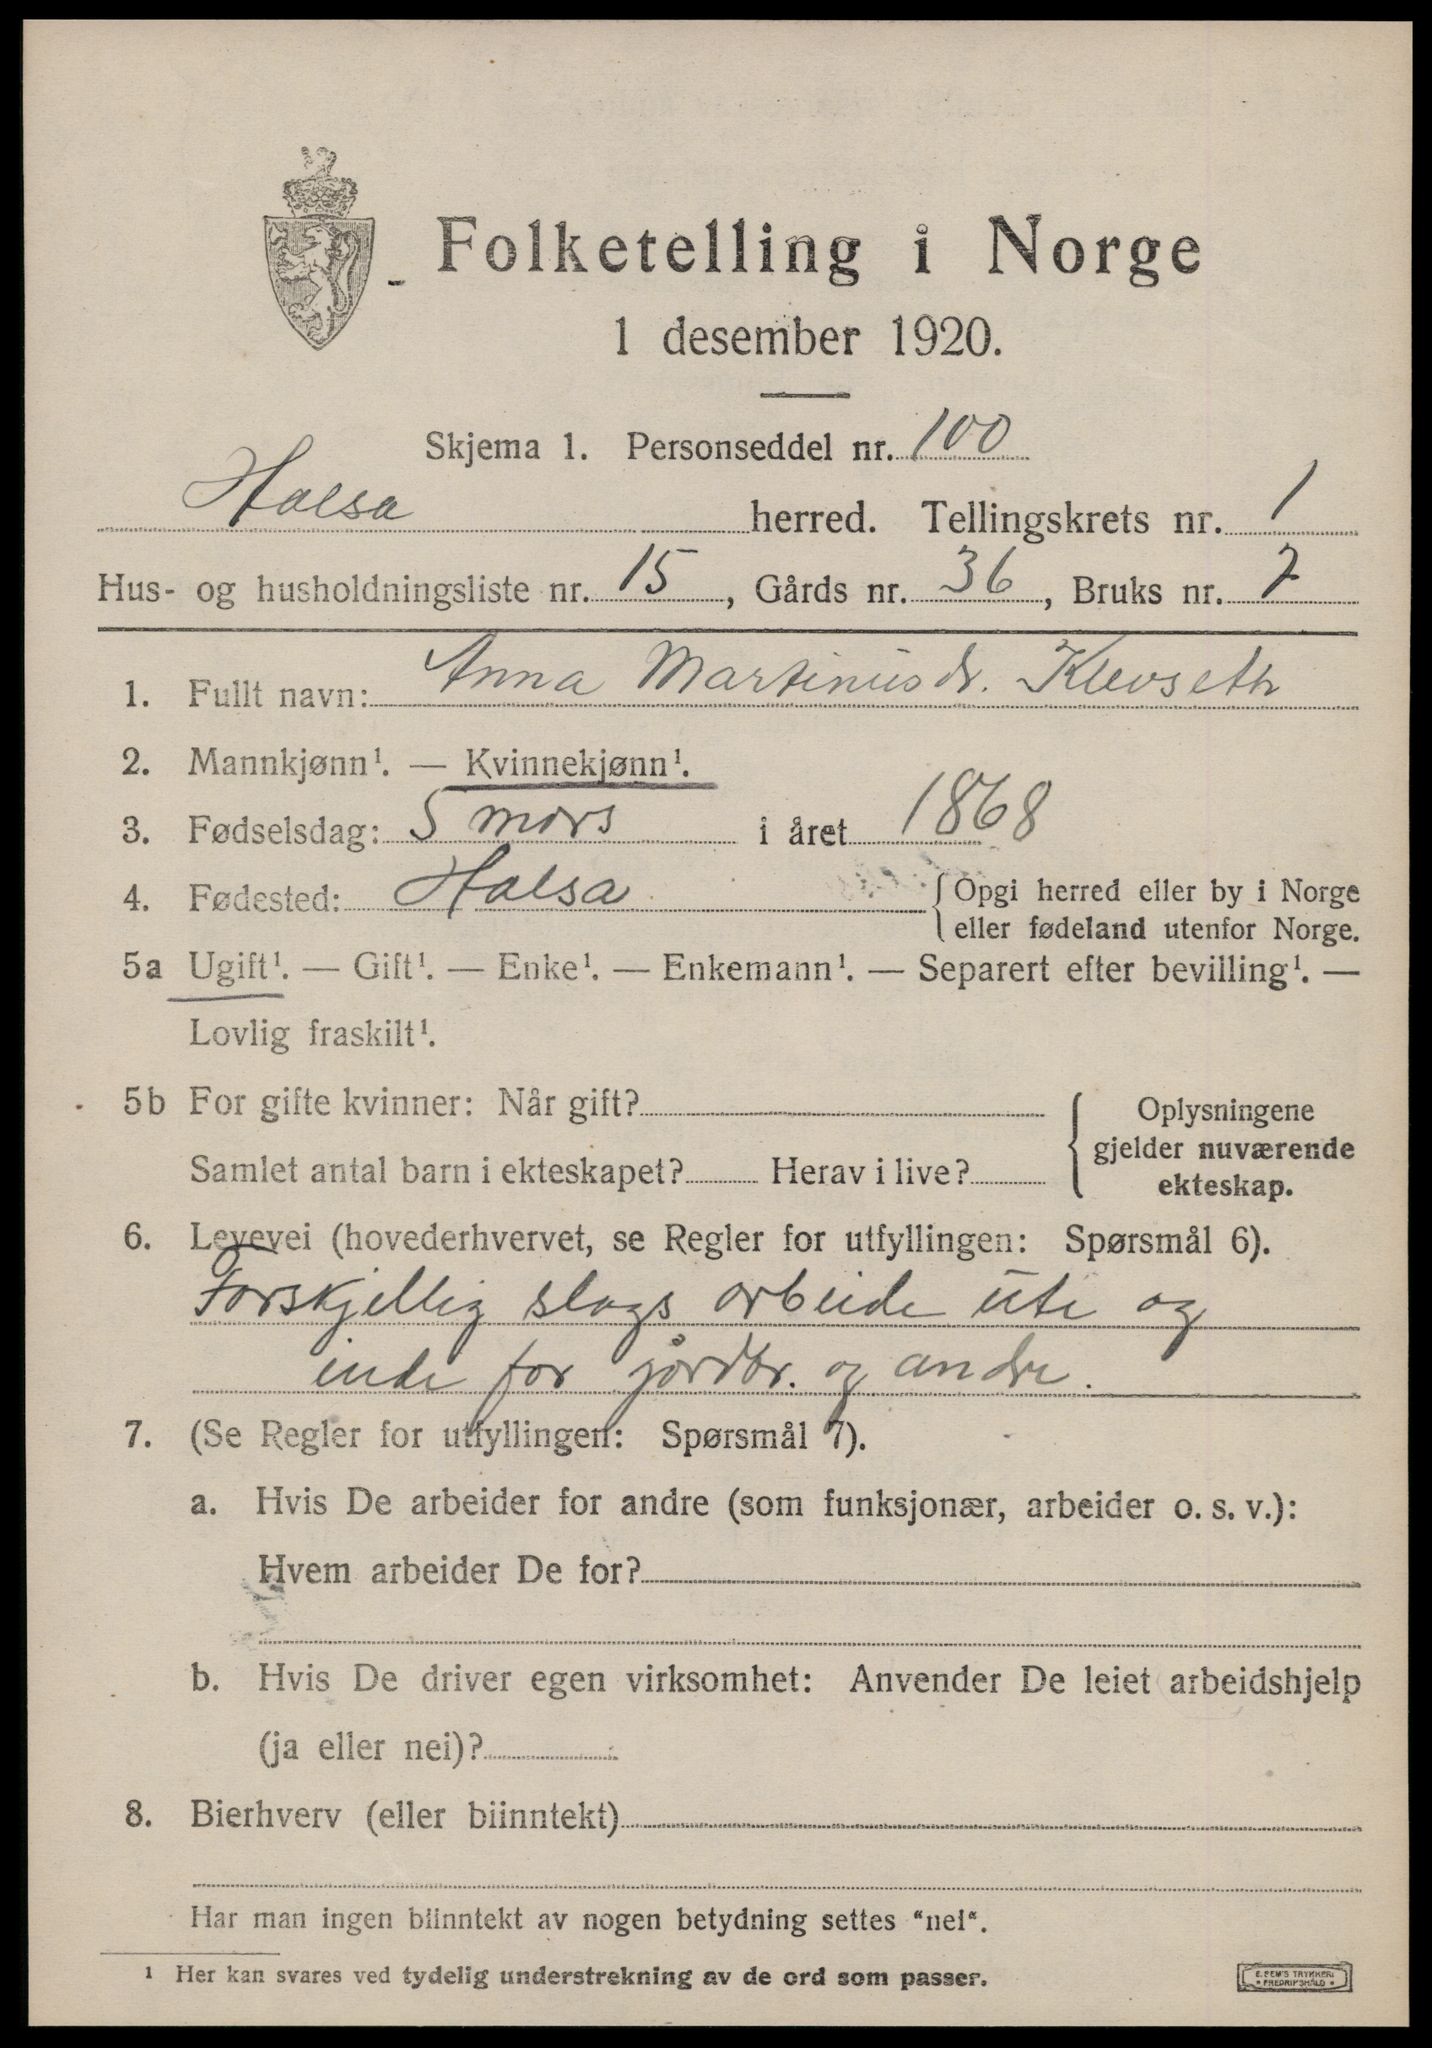 Folketelling i Norge
1 desember 1920.
Skjema 1. Personseddel nr. 100
Halsa herred. Tellingskrets nr. 1
Hus- og husholdningsliste nr. 15, Gårds nr. 36, Bruks nr. 7
1. Fullt navn: Anna Martinusdr. Klevseth
2. Mannkjønn¹. — Kvinnekjønn¹.
3. Fødselsdag: 5 mars i året 1868
4. Fødested: Halsa { Opgi herred eller by i Norge
eller fødeland utenfor Norge.
5a Ugift¹. — Gift¹. — Enke¹. — Enkemann¹. — Separert efter bevilling¹. —
Lovlig fraskilt¹.
5b For gifte kvinner: Når gift?
Samlet antal barn i ekteskapet? Herav i live?
Oplysningene
gjelder nuværende
ekteskap.
6. Levevei (hovederhvervet, se Regler for utfyllingen: Spørsmål 6).
Forskjellig slags arbeide ute og
inde for gårdbr. og andre.
7. (Se Regler for utfyllingen: Spørsmål 7).
a. Hvis De arbeider for andre (som funksjonær, arbeider o. s. v.):
Hvem arbeider De for?
b. Hvis De driver egen virksomhet: Anvender De leiet arbeidshjelp
(ja eller nei)?
8. Bierhverv (eller biinntekt)
Har man ingen biinntekt av nogen betydning settes "nei".
¹ Her kan svares ved tydelig understrekning av de ord som passer.
E. SEM'S TRYKKERI
FREDRIKSHALD